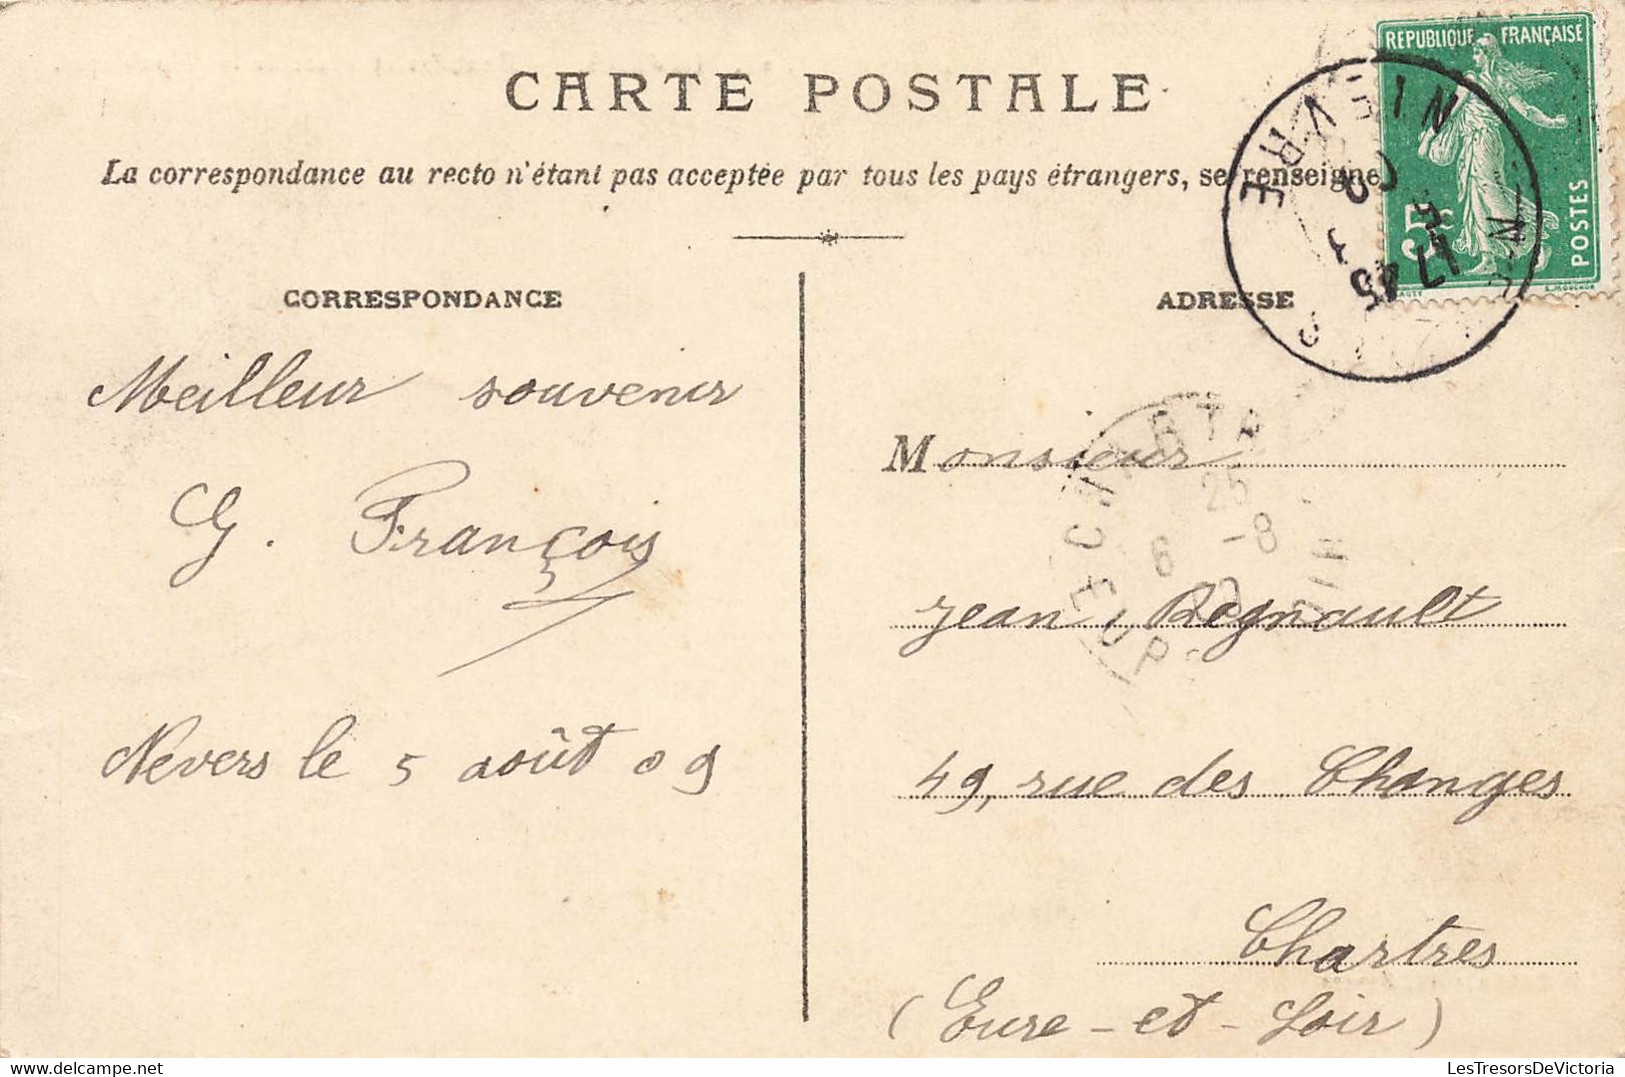 CARTE POSTALE
La correspondance au recto n'étant pas acceptée par tous les pays étrangers, se renseigne
REPUBLIQUE FRANÇAISE
5c
POSTES
NIEVRE
17 45
5
CORRESPONDANCE
Meilleur souvenir
G. François
Nevers le 5 août 09
ADRESSE
CHARTR
EURE
25
6 -8
Monsieur
Jean Regnault
49, rue des Changes
Chartres
(Eure-et-Loir)
LesTresorsDeVictoria